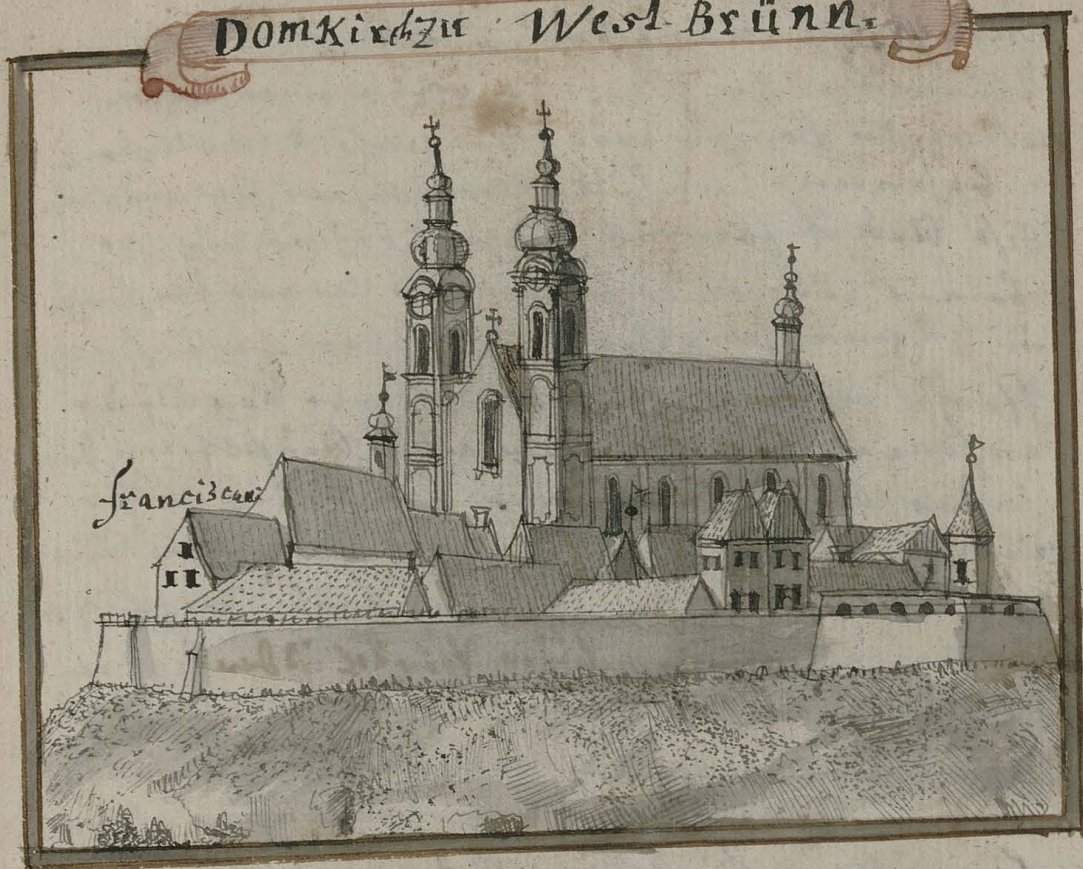 DomKirch zu West Brünn.
Franciscan